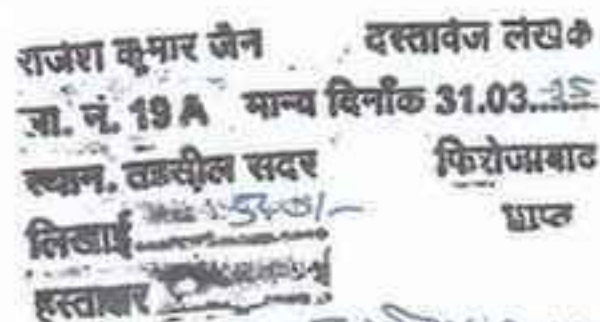 राजेश कुमार जैन दस्तावेज लेखक
ला. नं. 19 A मान्य दिनाँक 31.03...25
स्थान. तहसील सदर फिरोजाबाद
लिखाई 500/- प्राप्त
हस्ताक्षर